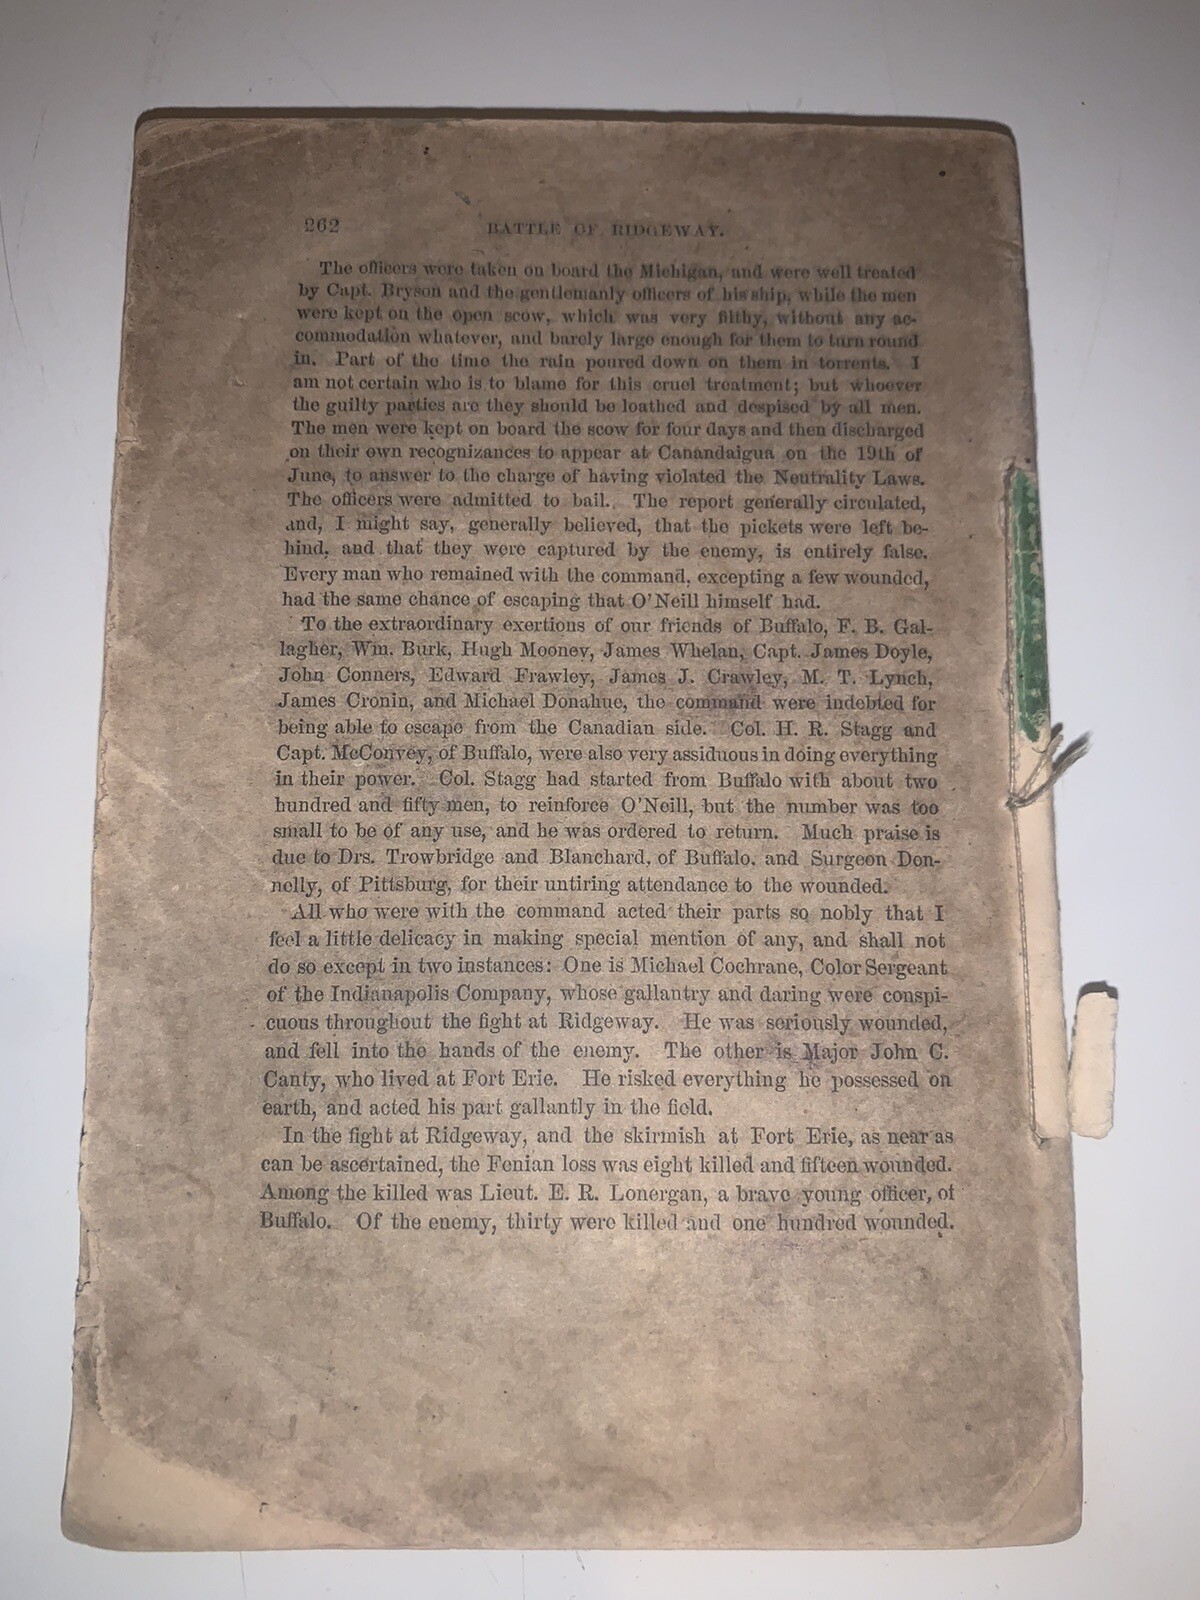 262 BATTLE OF RIDGEWAY.
The officers were taken on board the Michigan, and were well treated
by Capt. Bryson and the gentlemanly officers of his ship, while the men
were kept on the open scow, which was very filthy, without any ac-
commodation whatever, and barely large enough for them to turn round
in. Part of the time the rain poured down on them in torrents. I
am not certain who is to blame for this cruel treatment; but whoever
the guilty parties are they should be loathed and despised by all men.
The men were kept on board the scow for four days and then discharged
on their own recognizances to appear at Canandaigua on the 19th of
June, to answer to the charge of having violated the Neutrality Laws.
The officers were admitted to bail. The report generally circulated,
and, I might say, generally believed, that the pickets were left be-
hind, and that they were captured by the enemy, is entirely false.
Every man who remained with the command, excepting a few wounded,
had the same chance of escaping that O'Neill himself had.
To the extraordinary exertions of our friends of Buffalo, F. B. Gal-
lagher, Wm. Burk, Hugh Mooney, James Whelan, Capt. James Doyle,
John Conners, Edward Frawley, James J. Crawley, M. T. Lynch,
James Cronin, and Michael Donahue, the command were indebted for
being able to escape from the Canadian side. Col. H. R. Stagg and
Capt. McConvey, of Buffalo, were also very assiduous in doing everything
in their power. Col. Stagg had started from Buffalo with about two
hundred and fifty men, to reinforce O'Neill, but the number was too
small to be of any use, and he was ordered to return. Much praise is
due to Drs. Trowbridge and Blanchard, of Buffalo, and Surgeon Don-
nelly, of Pittsburg, for their untiring attendance to the wounded.
All who were with the command acted their parts so nobly that I
feel a little delicacy in making special mention of any, and shall not
do so except in two instances: One is Michael Cochrane, Color Sergeant
of the Indianapolis Company, whose gallantry and daring were conspi-
cuous throughout the fight at Ridgeway. He was seriously wounded,
and fell into the hands of the enemy. The other is Major John C.
Canty, who lived at Fort Erie. He risked everything he possessed on
earth, and acted his part gallantly in the field.
In the fight at Ridgeway, and the skirmish at Fort Erie, as near as
can be ascertained, the Fenian loss was eight killed and fifteen wounded.
Among the killed was Lieut. E. R. Lonergan, a brave young officer, of
Buffalo. Of the enemy, thirty were killed and one hundred wounded.